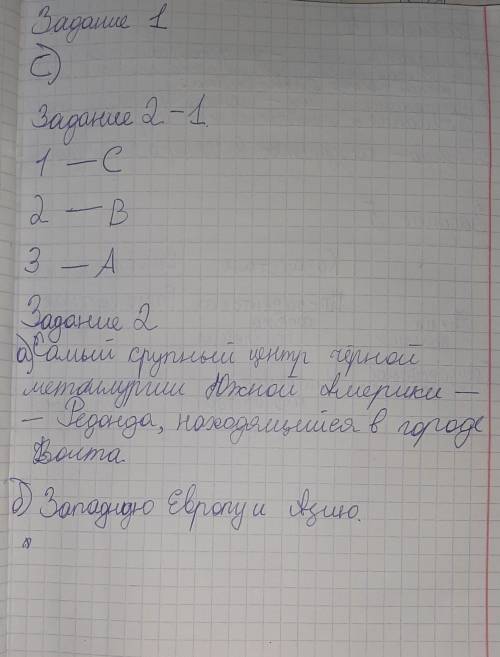 Задание 1
С)
Задание 2-1.
1 — С
2 — В
3 — А
Задание 2
а) Самый крупный центр чёрной
металлургии Южной Америки —
- Редонда, находящийся в городе
Волта.
б) Западную Европу и Азию.